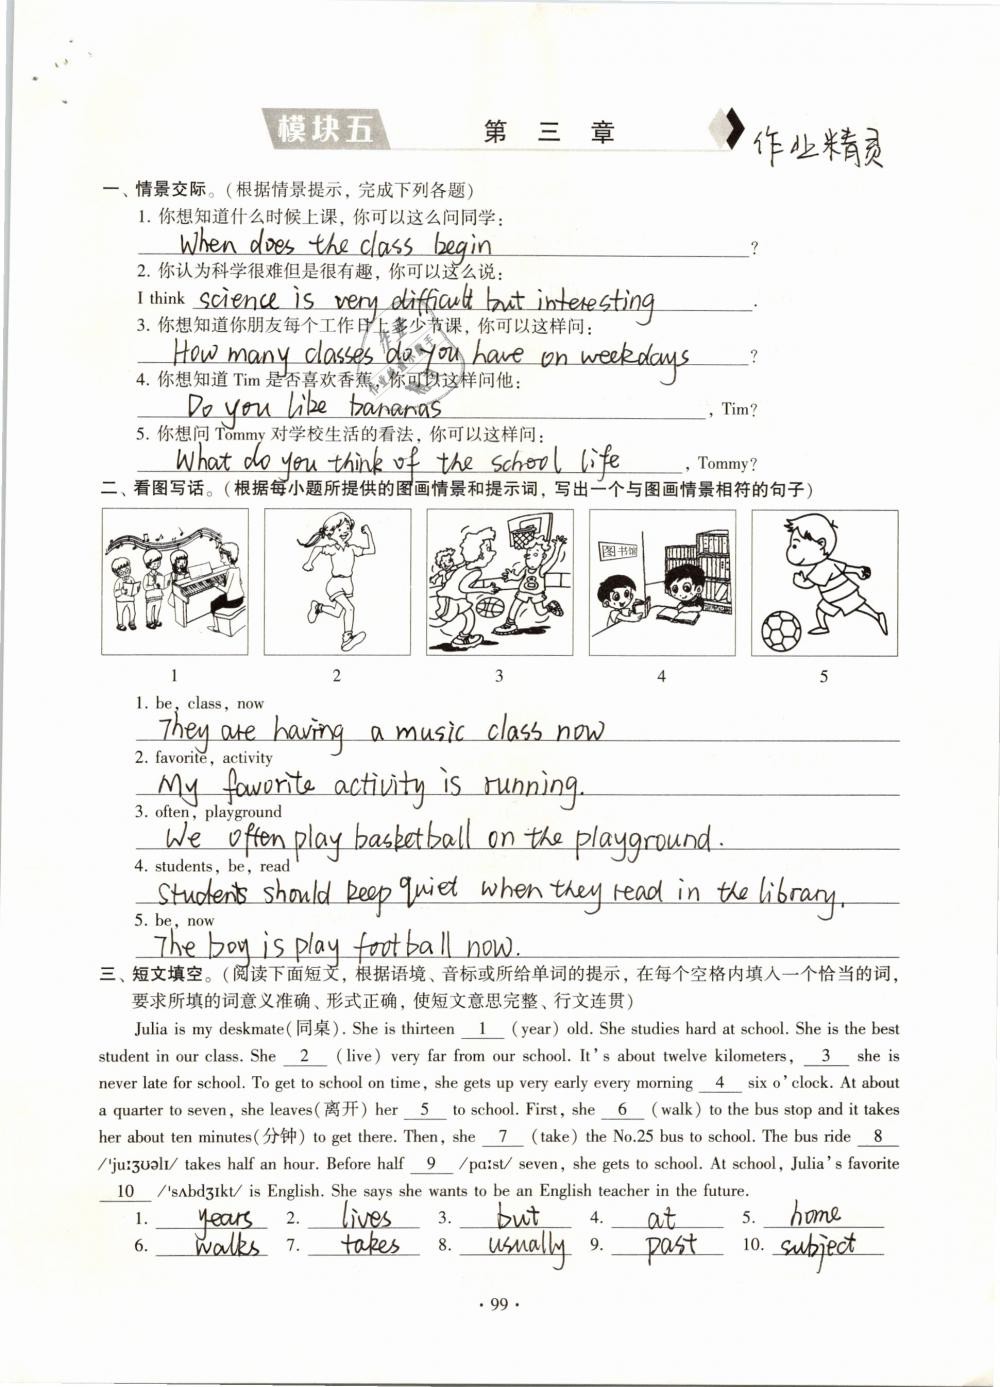 模块五 第三章 作业精灵
一、情景交际。(根据情景提示,完成下列各题)
1. 你想知道什么时候上课,你可以这么问同学:
When does the class begin ?
2. 你认为科学很难但是很有趣,你可以这么说:
I think science is very difficult but interesting .
3. 你想知道你朋友每个工作日上多少节课,你可以这样问:
How many classes do you have on weekdays ?
4. 你想知道 Tim 是否喜欢香蕉,你可以这样问他:
Do you like bananas , Tim?
5. 你想问 Tommy 对学校生活的看法,你可以这样问:
What do you think of the school life , Tommy?
二、看图写话。(根据每小题所提供的图画情景和提示词,写出一个与图画情景相符的句子)
图书馆
1 2 3 4 5
1. be, class, now
They are having a music class now
2. favorite, activity
My favorite activity is running.
3. often, playground
We often play basketball on the playground.
4. students, be, read
Students should keep quiet when they read in the library.
5. be, now
The boy is play football now.
三、短文填空。(阅读下面短文,根据语境、音标或所给单词的提示,在每个空格内填入一个恰当的词,
要求所填的词意义准确、形式正确,使短文意思完整、行文连贯)
Julia is my deskmate(同桌). She is thirteen 1 (year) old. She studies hard at school. She is the best
student in our class. She 2 (live) very far from our school. It's about twelve kilometers, 3 she is
never late for school. To get to school on time, she gets up very early every morning 4 six o'clock. At about
a quarter to seven, she leaves(离开) her 5 to school. First, she 6 (walk) to the bus stop and it takes
her about ten minutes(分钟) to get there. Then, she 7 (take) the No.25 bus to school. The bus ride 8
/ˈjuːʒʊəlɪ/ takes half an hour. Before half 9 /pɑːst/ seven, she gets to school. At school, Julia's favorite
10 /ˈsʌbdʒɪkt/ is English. She says she wants to be an English teacher in the future.
1. years 2. lives 3. but 4. at 5. home
6. walks 7. takes 8. usually 9. past 10. subject
· 99 ·